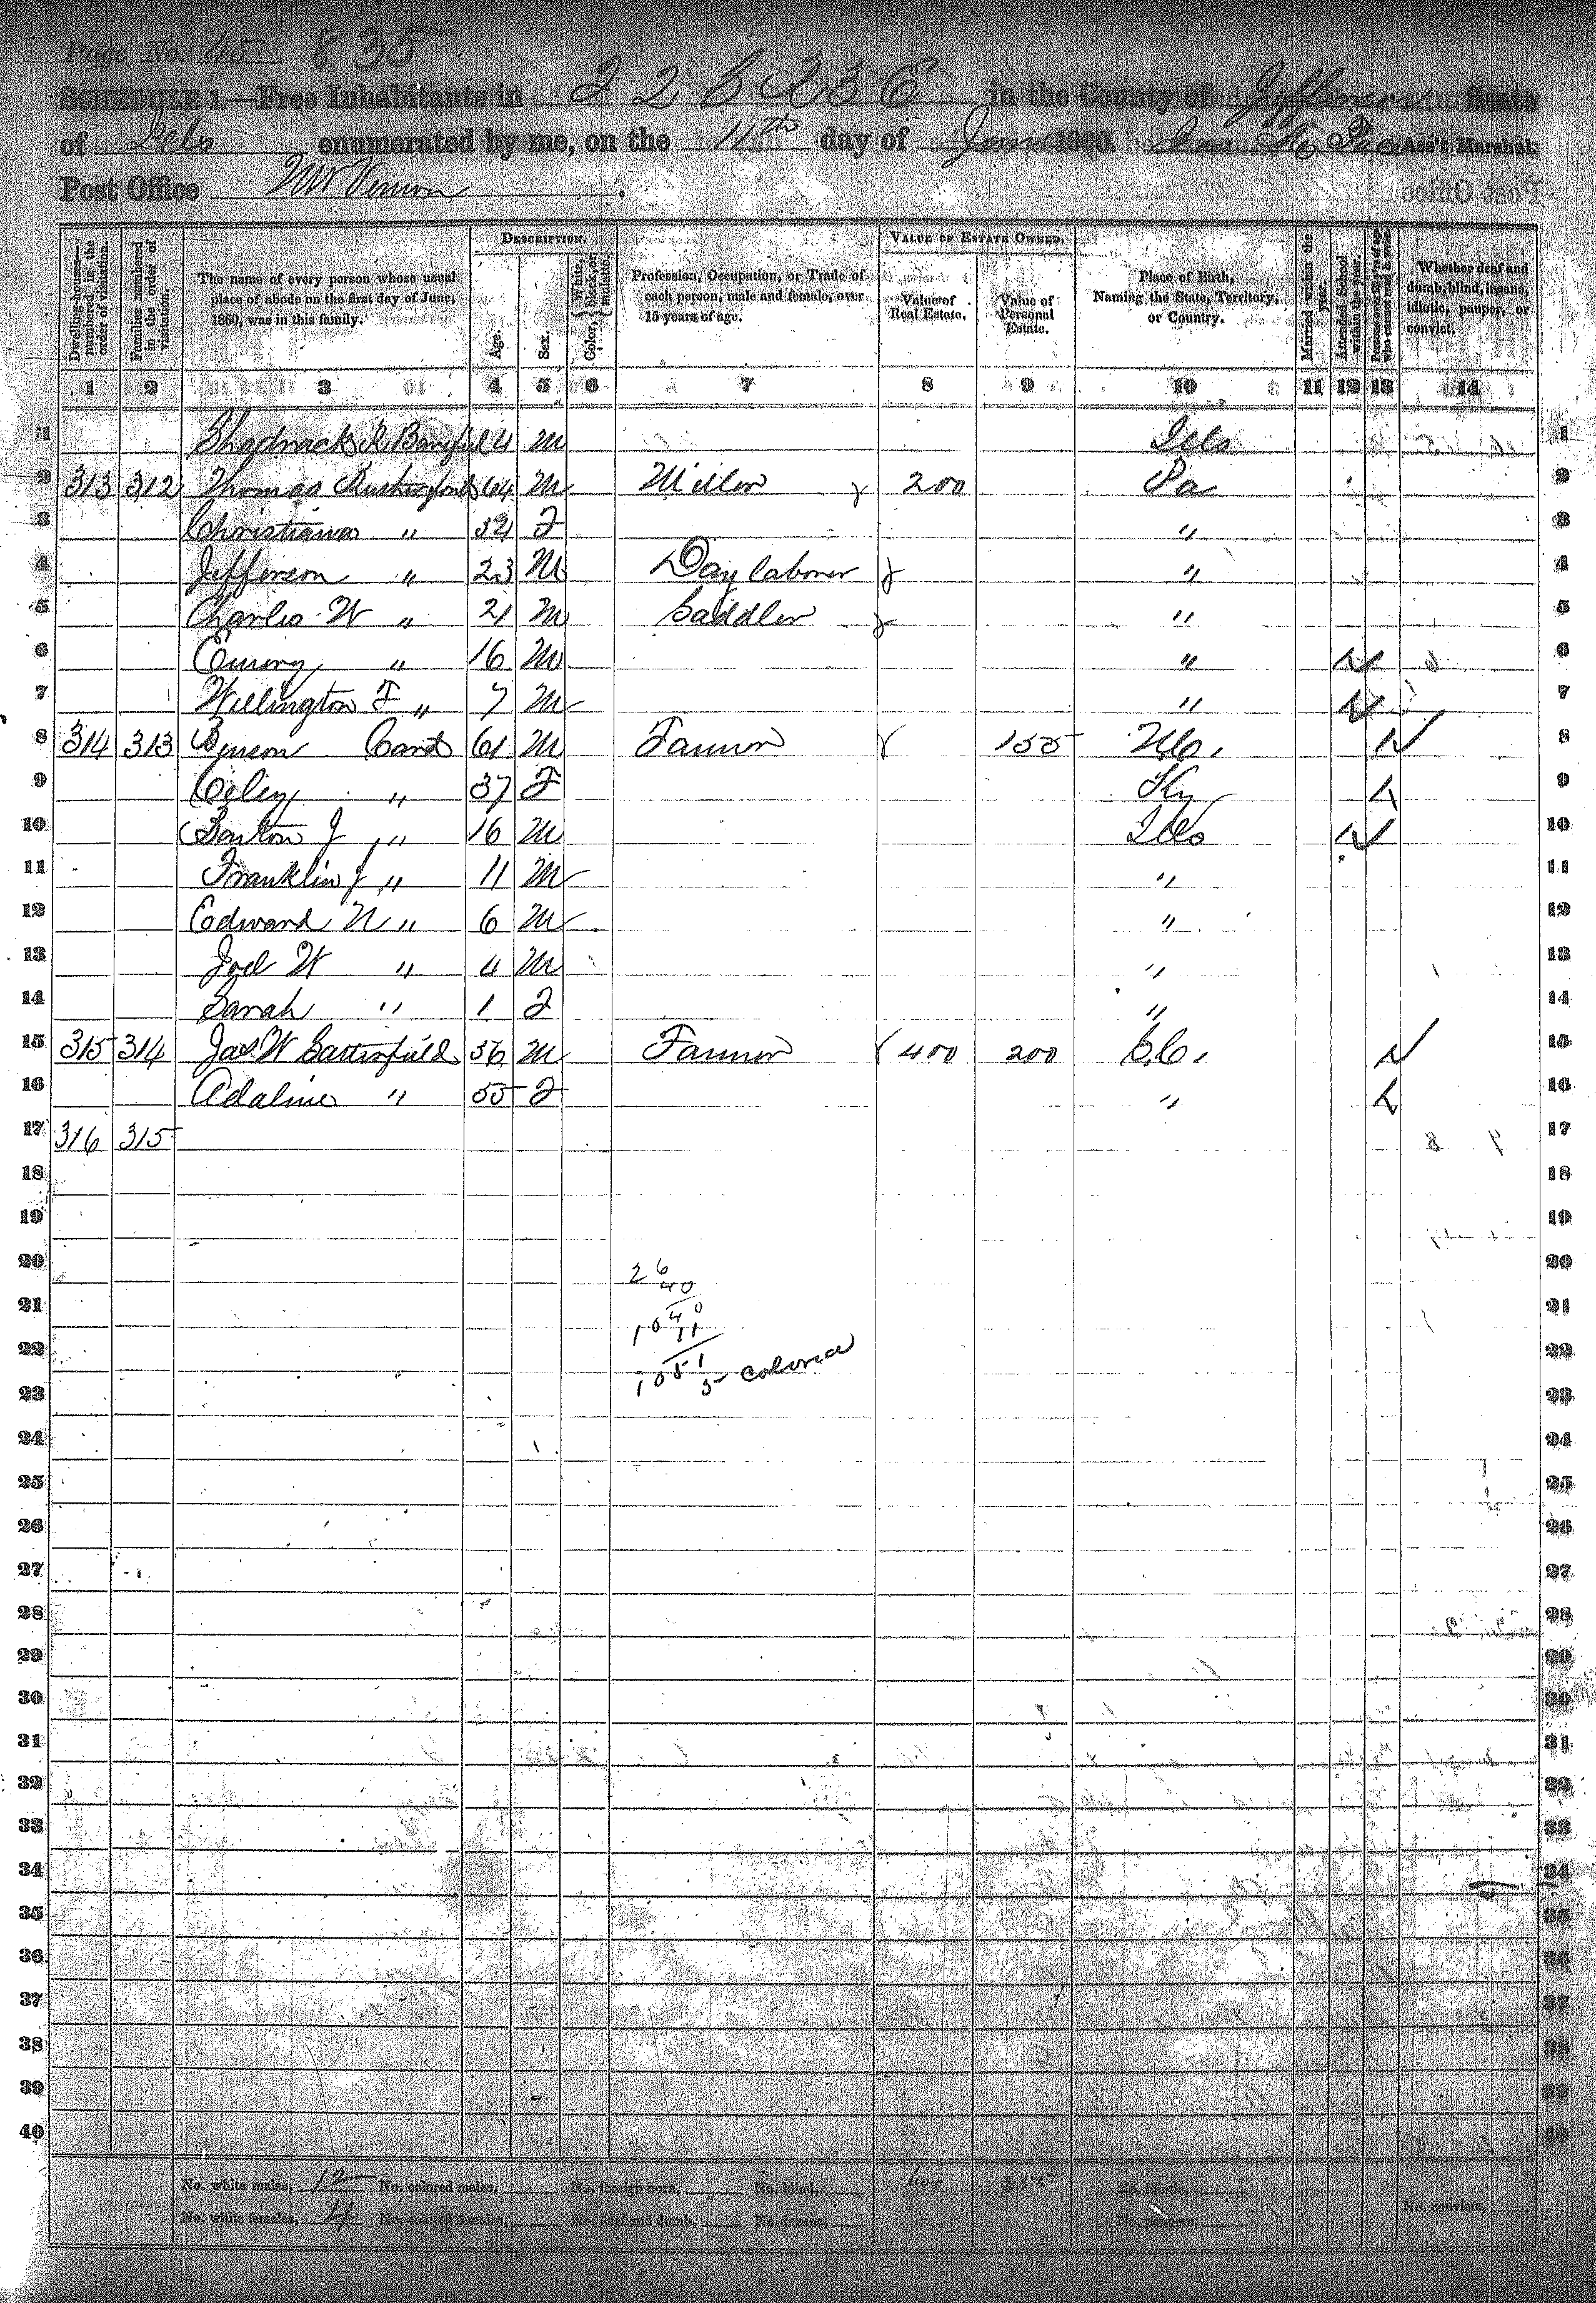 Page No. 45 835
SCHEDULE 1.—Free Inhabitants in 2 2 S R 3 E in the County of Jefferson State
of Ills enumerated by me, on the 11th day of June 1860. Pace Ass't Marshal.
Post Office Mt Vernon.
Dwelling-houses—numbered in the order of visitation.
Families numbered in the order of visitation.
The name of every person whose usual place of abode on the first day of June, 1860, was in this family.
DESCRIPTION.
Age.
Sex.
Color, { White, black, or mulatto.
Profession, Occupation, or Trade of each person, male and female, over 15 years of age.
VALUE OF ESTATE OWNED.
Value of Real Estate.
Value of Personal Estate.
Place of Birth, Naming the State, Territory, or Country.
Married within the year.
Attended School within the year.
Persons over 20 y'rs of age who cannot read & write.
Whether deaf and dumb, blind, insane, idiotic, pauper, or convict.
1 2 3 4 5 6 7 8 9 10 11 12 13 14
1 Shadrack R 4 M Ills 1
2 313 312 Thomas 64 M Miller 200 Pa 2
3 Christiana " F " 3
4 Jefferson " 23 M Day laborer " 4
5 Charles W " 21 M Saddler " 5
6 Emory " 16 M " 6
7 Willington F " 7 M " 7
8 314 313 61 M Farmer 155 8
9 " 37 F Ky 9
10 Barton J " 16 M Ills 10
11 Franklin J " 11 M " 11
12 Edward N " 6 M " 12
13 Joel W " 4 M " 13
14 Sarah " 1 F " 14
15 315 314 Jas W Satterfield 56 M Farmer 400 200 S.C. 15
16 Adaline " 55 F " 16
17 316 315 17
18 18
19 19
20 26 20
40
21 1040 21
11
22 1051 22
5 colored
23 23
24 24
25 25
26 26
27 27
28 28
29 29
30 30
31 31
32 32
33 33
34 34
35 35
36 36
37 37
38 38
39 39
40 40
No. white males, 12 No. colored males, No. foreign born, No. blind, 600 355 No. idiotic,
No. white females, 4 No. colored females, No. deaf and dumb, No. insane, No. paupers, No. convicts,